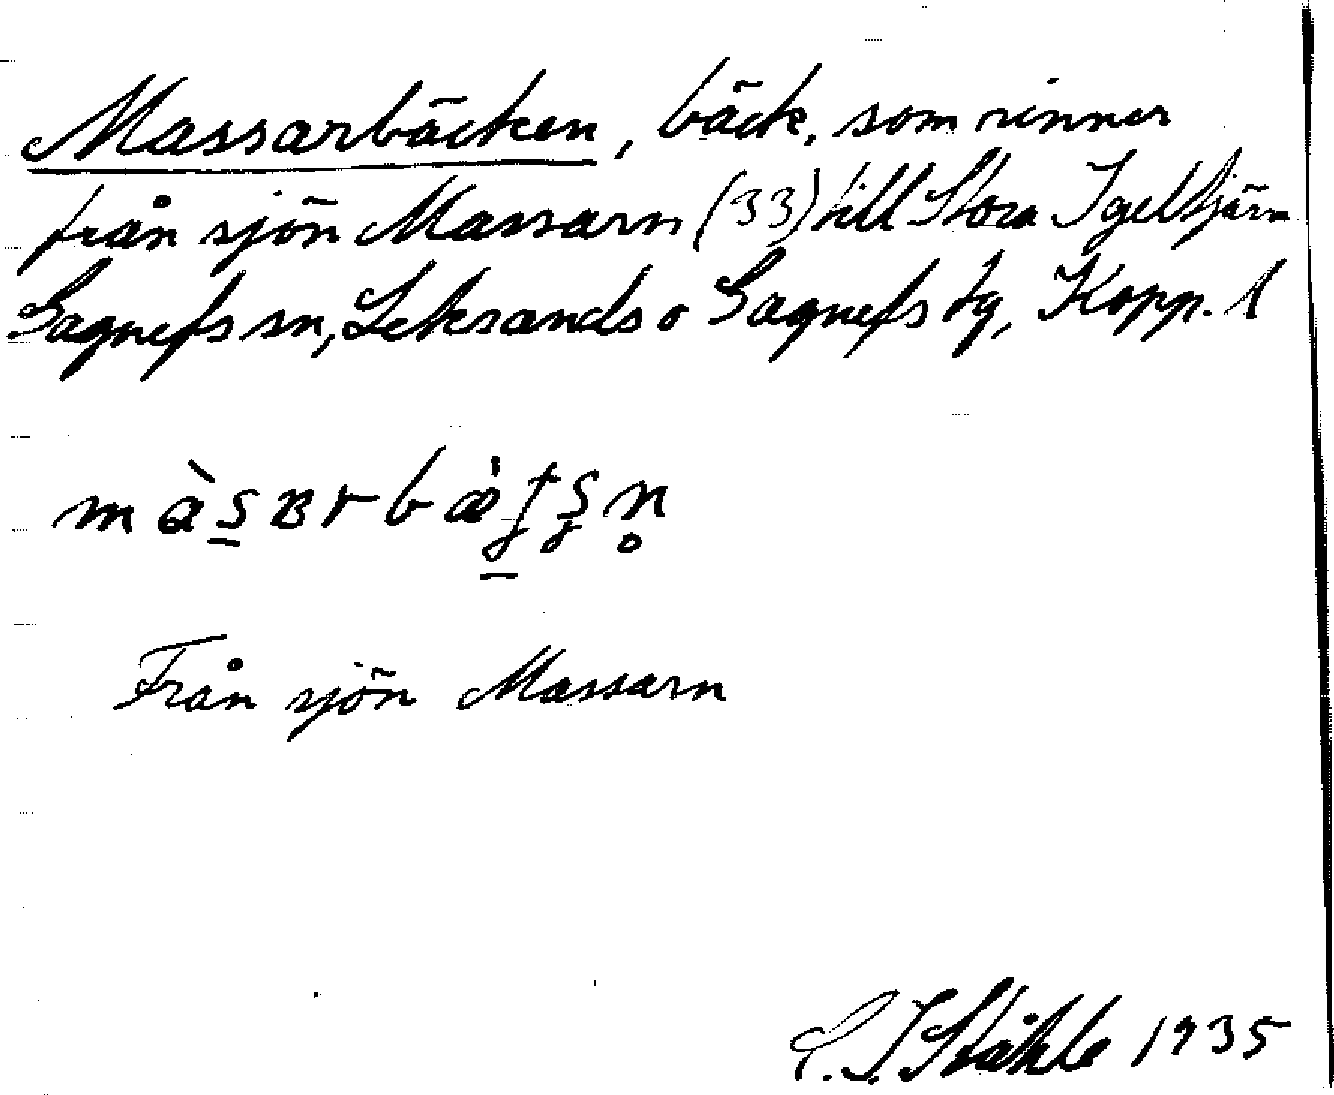 Massarbäcken, bäck, som rinner
från sjön Massarn (33) till Stora Igeltjärn
Gagnefs sn, Leksands o Gagnefs tg, Kopp. l
Från sjön Massarn
C. I. Ståhle 1935